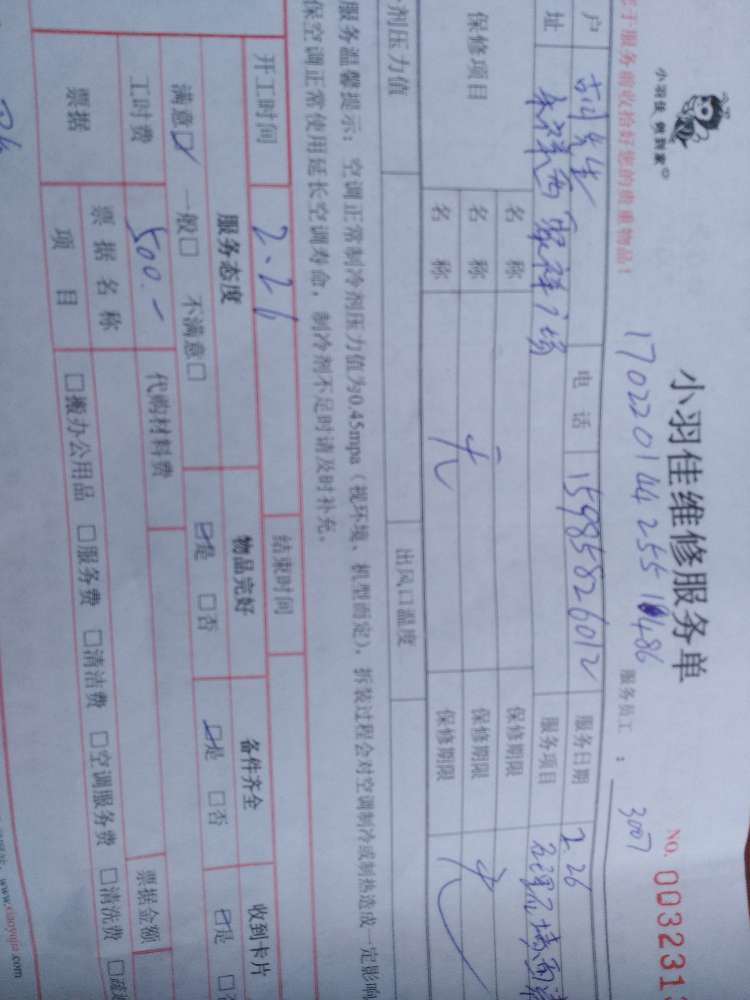 于服务前收拾好您的贵重物品！
小羽佳 做到家
小羽佳维修服务单
NO. 003231
服务员工：3007
户
先生
电话 15985826012
服务日期 2.26
址
广场
服务项目
保修项目
名称
保修期限
名称 无
保修期限 无
名称
保修期限
剂压力值
出风口温度
服务温馨提示：空调正常制冷剂压力值为0.45mpa（视环境、机型而定），拆装过程会对空调制冷或制热造成一定影响
保空调正常使用延长空调寿命，制冷剂不足时请及时补充。
开工时间 2.26
结束时间
服务态度
物品完好
备件齐全
收到卡片
满意☑ 一般□ 不满意□
☑是 □否
☑是 □否
☑是
工时费 500.-
代购材料费
票据
票据名称
票据金额
项目
□搬办公用品 □服务费 □清洁费 □空调服务费 □清洗费